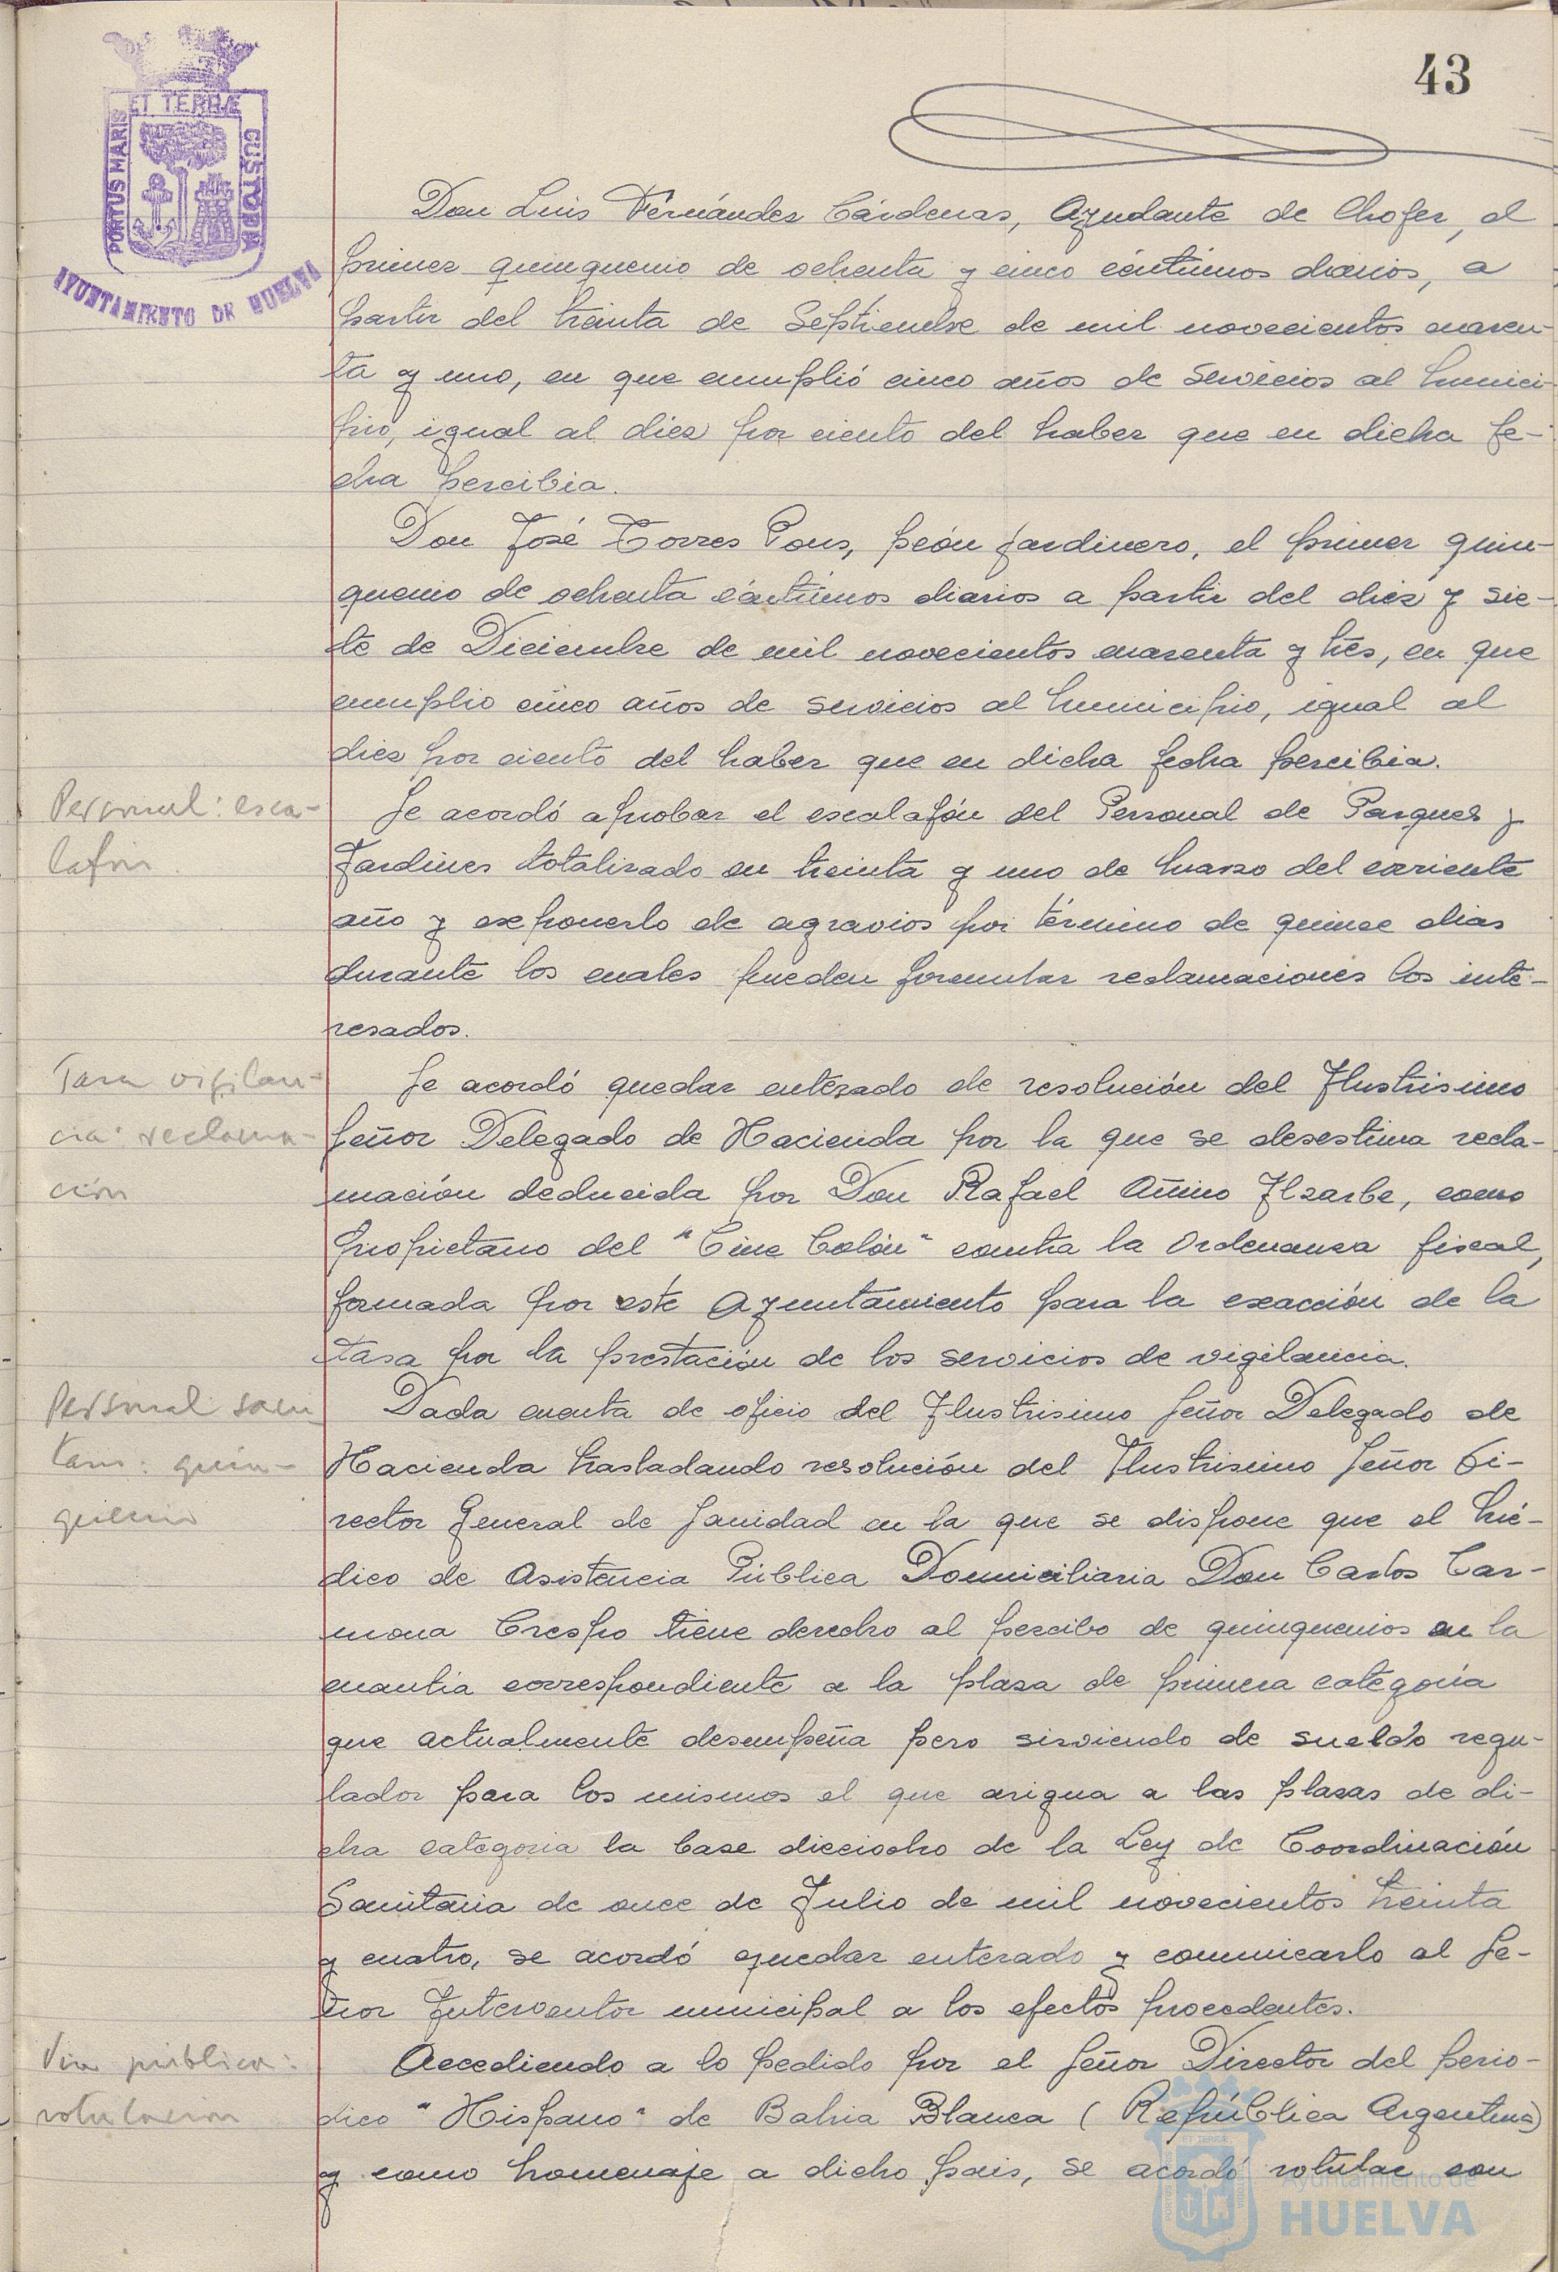 43
ET TERRÆ
PORTUS MARIS
CUSTODIA
AYUNTAMIENTO DE HUELVA
Don Luis Fernández Cárdenas, Ayudante de Chofer, el
primer quinquenio de ochenta y cinco céntimos diarios, a
partir del treinta de Septiembre de mil novecientos cuaren-
ta y uno, en que cumplió cinco años de servicios al munici-
pio, igual al diez por ciento del haber que en dicha fe-
cha percibia.
Don José Torres Pons, peón jardinero, el primer quin-
quenio de ochenta céntimos diarios a partir del diez y sie-
te de Diciembre de mil novecientos cuarenta y tres, en que
cumplio cinco años de servicios al municipio, igual al
diez por ciento del haber que en dicha fecha percibia.
Personal: esca-
lafón.
Se acordó aprobar el escalafón del Personal de Parques y
Jardines totalizado en treinta y uno de marzo del corriente
año y exponerlo de agravios por término de quince dias
durante los cuales pueden formular reclamaciones los inte-
resados.
Tasa vigilan-
cia: reclama-
ción
Se acordó quedar enterado de resolución del Ilustrisimo
Señor Delegado de Hacienda por la que se desestima recla-
mación deducida por Don Rafael Añino Ilzarbe, como
propietario del "Cine Colón" contra la Ordenanza fiscal,
formada por este Ayuntamiento para la exacción de la
tasa por la prestación de los servicios de vigilancia.
Personal sani
tario: quin-
quenio
Dada cuenta de oficio del Ilustrisimo Señor Delegado de
Hacienda trasladando resolución del Ilustrisimo Señor Di-
rector General de Sanidad en la que se dispone que el Mé-
dico de Asistencia Pública Domiciliaria Don Carlos Car-
mona Crespo tiene derecho al percibo de quinquenios en la
cuantia correspondiente a la plaza de primera categoría
que actualmente desempeña pero sirviendo de sueldo regu-
lador para los mismos el que asigna a las plazas de di-
cha categoria la base dieciocho de la Ley de Coordinación
Sanitaria de once de Julio de mil novecientos treinta
y cuatro, se acordó quedar enterado y comunicarlo al Se-
ñor Interventor municipal a los efectos procedentes.
Via pública:
rotulacion
Accediendo a lo pedido por el Señor Director del perio-
dico "Hispano" de Bahia Blanca (República Argentina)
y como homenaje a dicho pais, se acordó rotular con
Ayuntamiento de
HUELVA